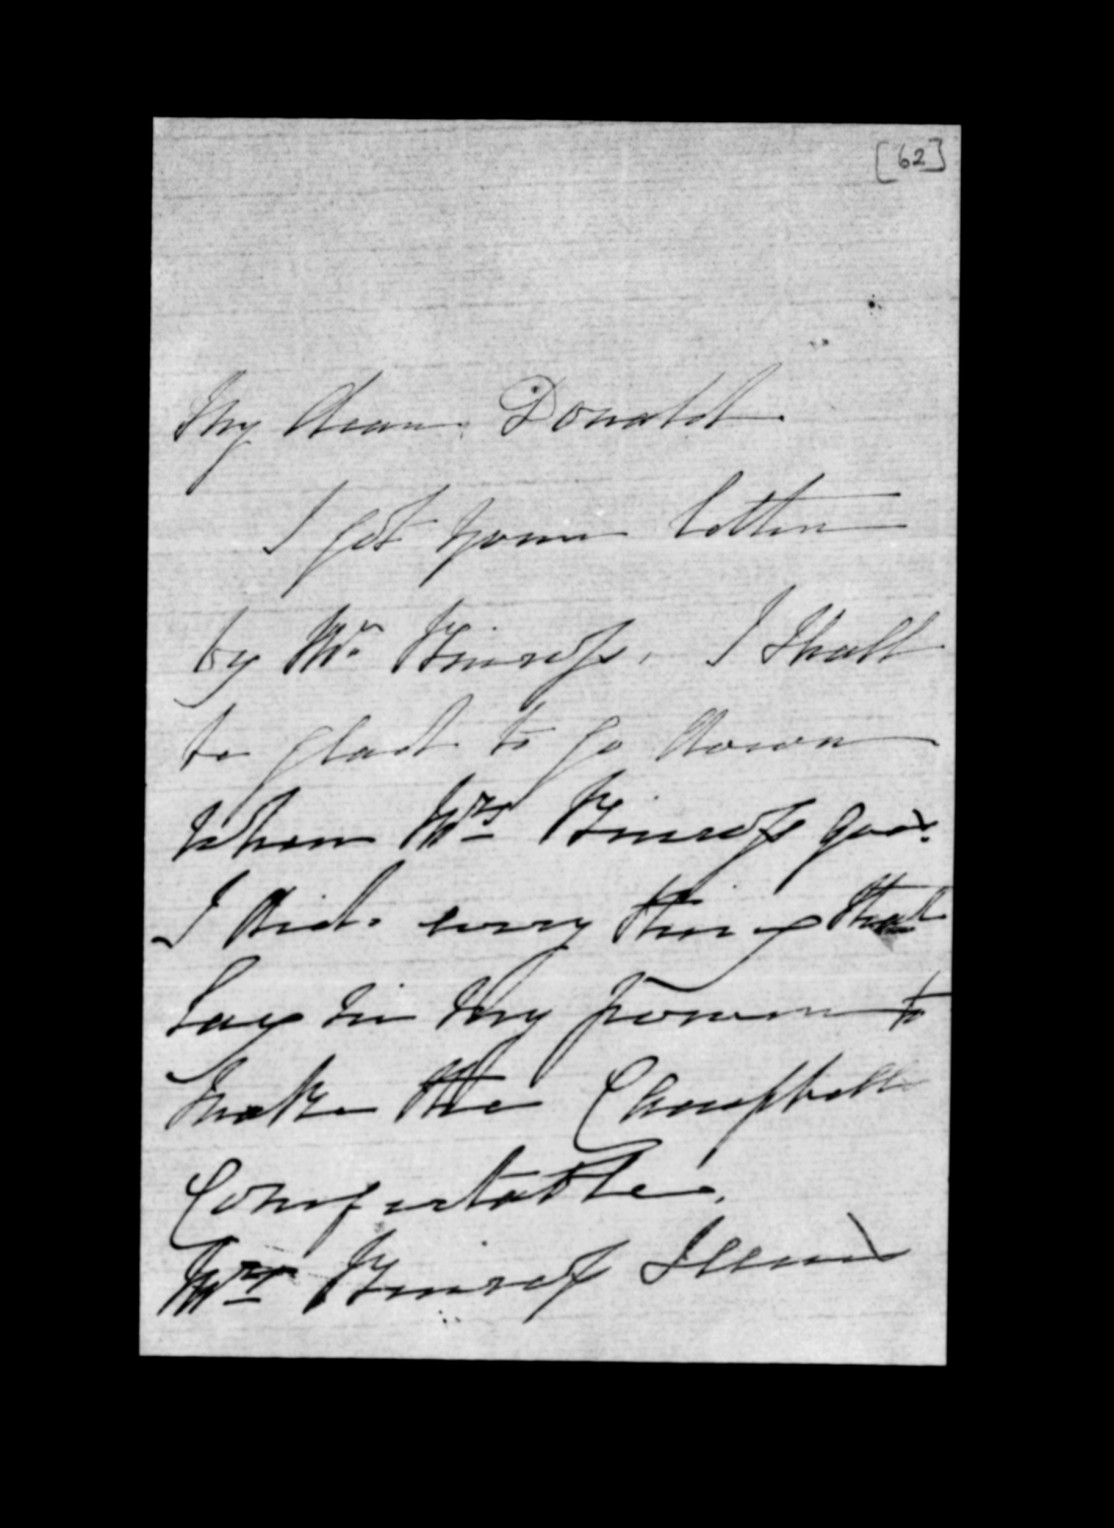 [62]
My dear Donald
I got your letter
by Mr. Kinross. I shall
be glad to go down
when Mrs Kinross goes.
I did every thing that
lay in my power to
make the Campbells
Comfortable.
Mrs Kinross seems